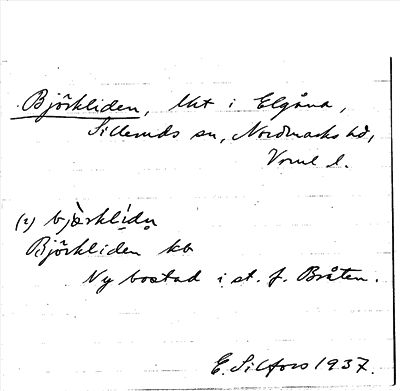 Björkliden, lht i Elgåna,
Silleruds sn, Nordmarks hd,
Vrml l.
(2) bjærkli´dn̥
Björkliden kb
Ny bostad i st. f. Bråten.
E. Silfors 1937.